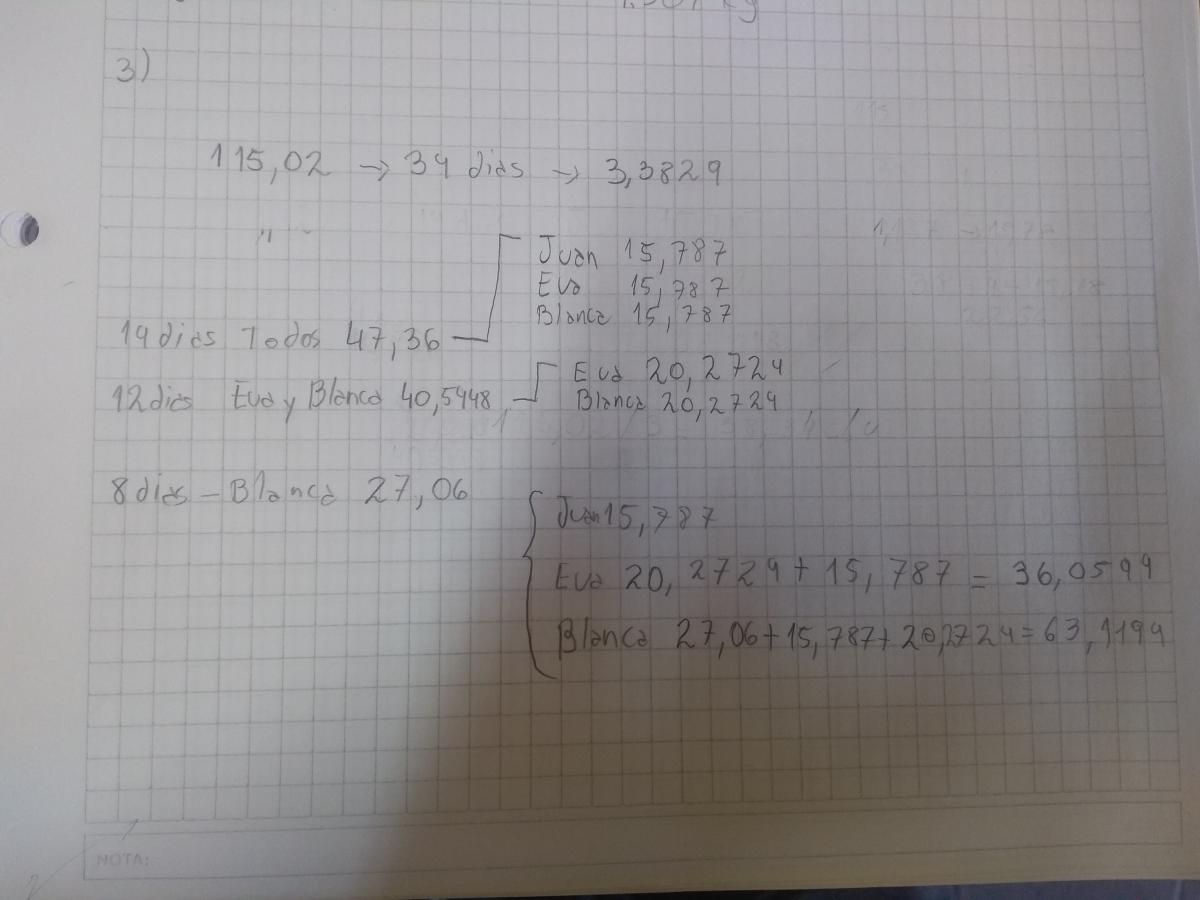 3)
115,02 → 34 dias → 3,3829
Juan 15,787
Eva 15,787
Blanca 15,787
14 dias Todos 47,36
Eva 20,2724
12 dias Eva y Blanca 40,5448
Blanca 20,2724
8 dias - Blanca 27,06
Juan 15,787
Eva 20,2724 + 15,787 = 36,0594
Blanca 27,06 + 15,787 + 20,2724 = 63,1194
NOTA: